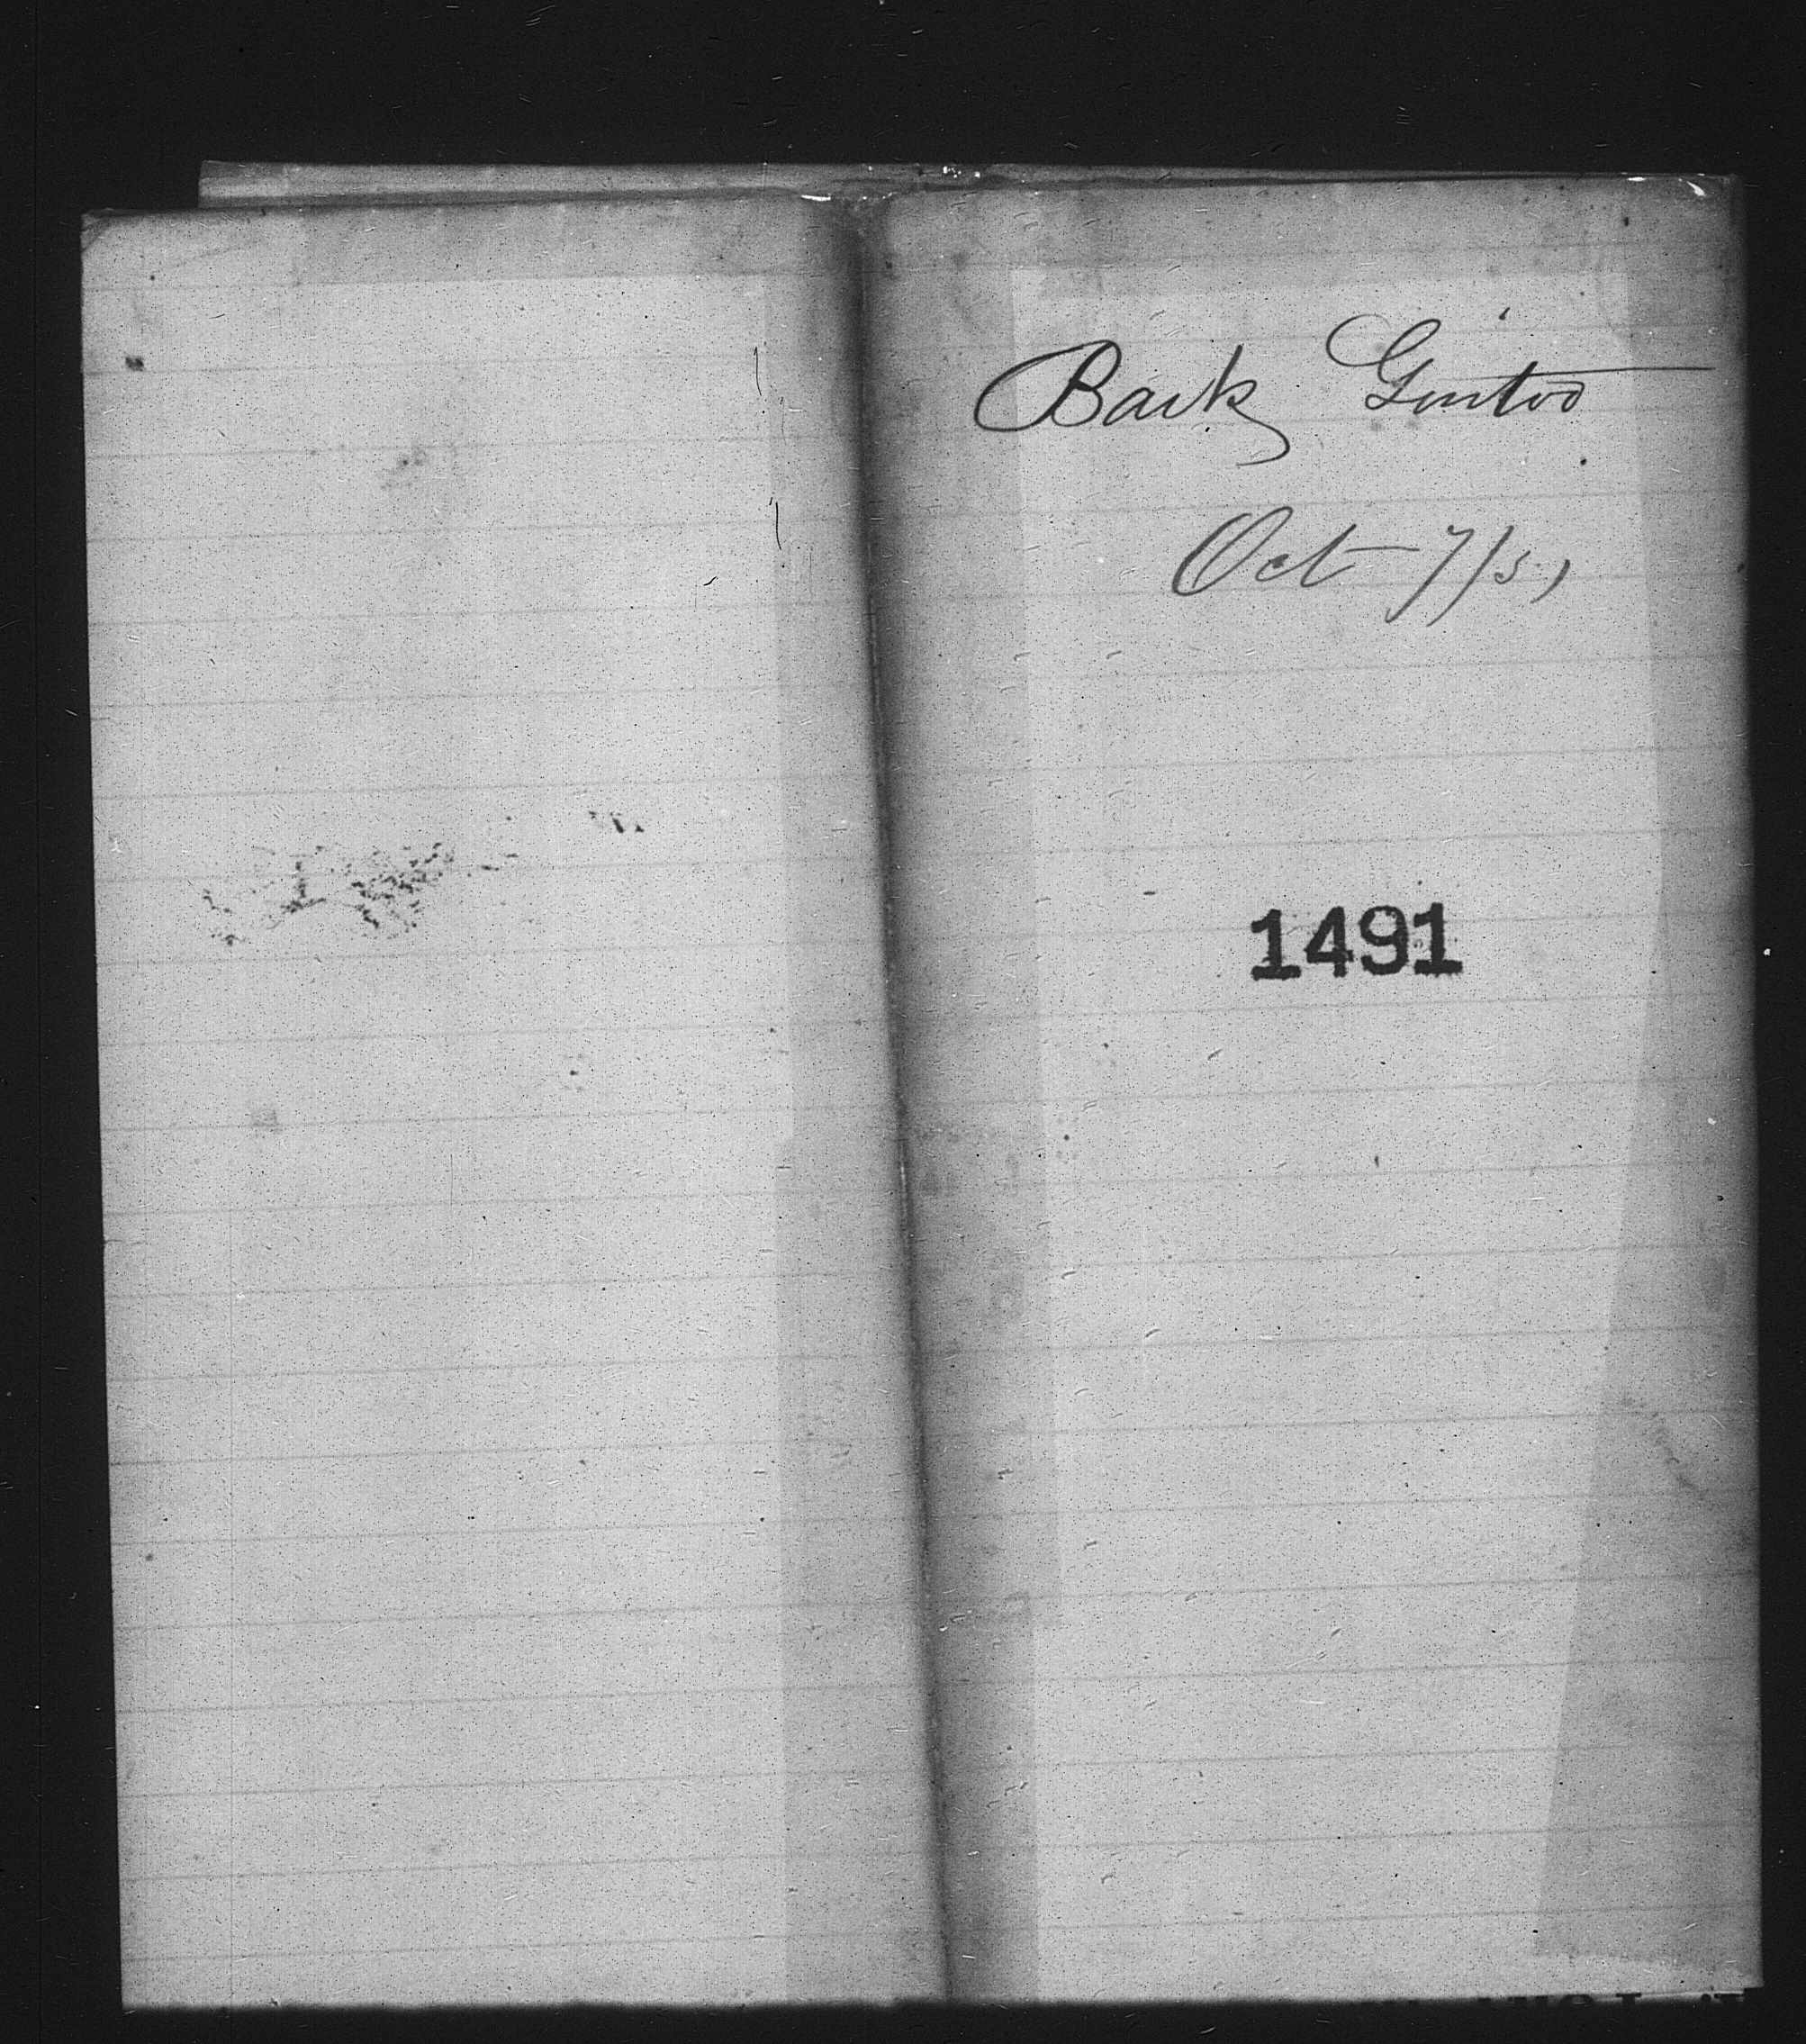 Bark Guitoo
Oct 7/51
1491